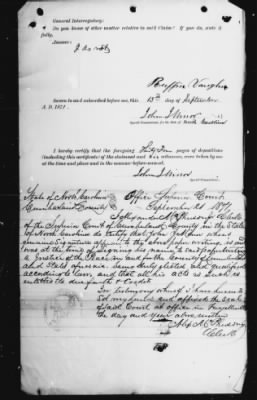 General Interrogatory:
Do you know of other matter relative to said Claim? If you do, state it
fully.
Answer:
I do not
Ruffin Vaughn
Sworn to and subscribed before me, this 13th day of September
A. D. 1871.
John J Minor
Special Commissioner for the State of North Carolina
I hereby certify that the foregoing pages of depositions
(including this certificate) of the claimant and his witnesses, were taken by me
at the time and place and in the manner before-named.
John J Minor
Special Commissioner.
State of North Carolina Office Superior Court
Cumberland County September 21 1871
I Alexander Clerk
of the Superior Court of Cumberland County in the State
of North Carolina do certify that John J Minor whose
genuine signature appears to the foregoing is and
was at the time of signing his name
a Justice of the Peace in and for the County of Cumberland
and State aforesaid duly elected and qualified
according to law, and that all his acts as such is
entitled to due faith &
In testimony whereof I have hereunto
set my hand and affixed the seal
of said Court at office in Fayetteville
the day and year above written
Clerk